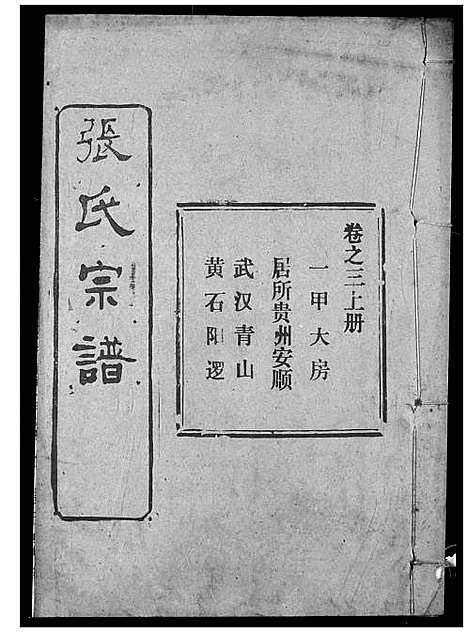 卷之三上册
一甲大房
居所贵州安顺
武汉青山
黄石阳逻
張氏宗譜